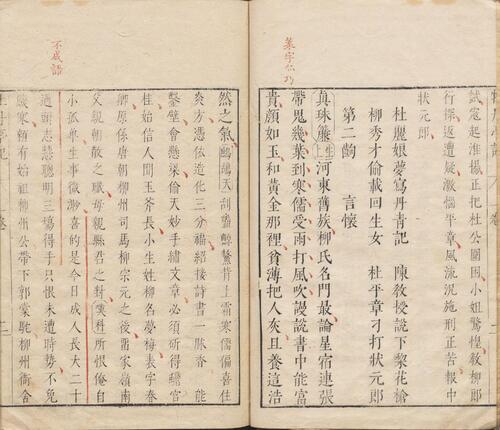 某字仙巧
試寇起淮揚正把杜公圍困小姐驚惶教柳郎
行探返遭疑激惱平章風流況施刑正苦報中
狀元郎
杜麗娘夢寫丹青記 陳教授說下梨花槍
柳秀才偷載回生女 杜平章刁打狀元郎
第二齣 言懷
真珠簾 生上 河東舊族柳氏名門最論星宿連張
帶鬼幾葉到寒儒受雨打風吹謾說書中能富
貴顏如玉和黃金那裡貧薄把人灰且養這浩
不成語
然之氣 鷓鴣天 刮盡鯨鰲背上霜寒儒偏喜住
炎方憑依造化三分福紹接詩書一脉香 能
鑿壁會懸梁偷天妙手繡文章必須砍得蟾宮
桂始信人間玉斧長小生姓柳名夢梅表字春
卿原係唐朝柳州司馬柳宗元之後留家嶺南
父親朝散之職母親縣君之封 嘆科 所恨俺自
小孤單生事微渺喜的是今日成人長大二十
過頭志慧聰明三場得手只恨未遭時勢不免
饑寒賴有始祖柳州公帶下郭橐駝柳州衙舍